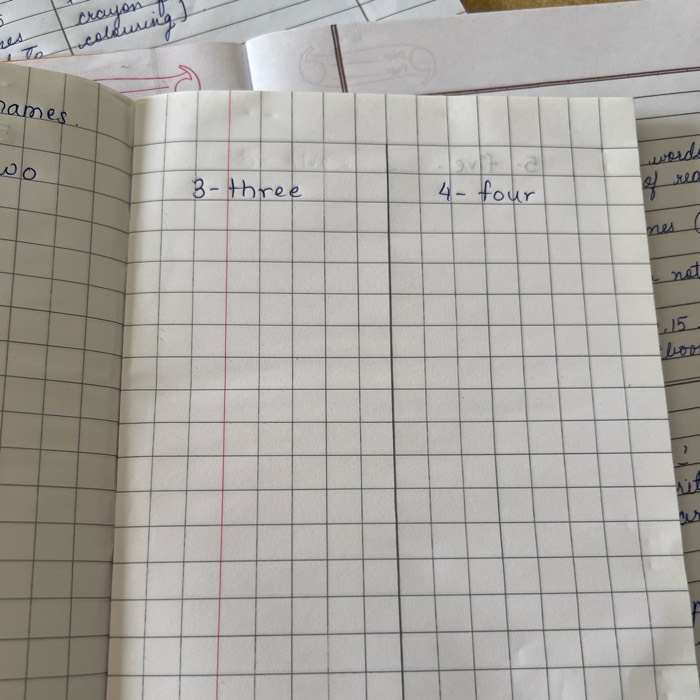 crayon
colouring)
To
names.
wo
3- three
4- four
words
of
not
15